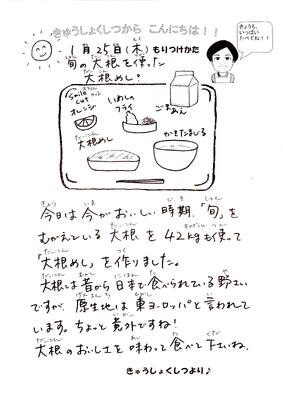 きゅうしょくしつから こんにちは！！
きょうも、
いっぱい
たべてね！！
1月25日(木) もりつけかた
旬の大根を使った
大根めし！
Smile cut
オレンジ
いわしの
フライ
ごまあえ
大根めし
かきたまじる
今日は今がおいしい時期、「旬」を
むかえている大根を42kgも使って
「大根めし」を作りました。
大根は昔から日本で食べられている野さい
ですが、原生地は東ヨーロッパと言われて
います。ちょっと意外ですね！
大根のおいしさを味わって食べて下さいね。
きゅうしょくしつより♪